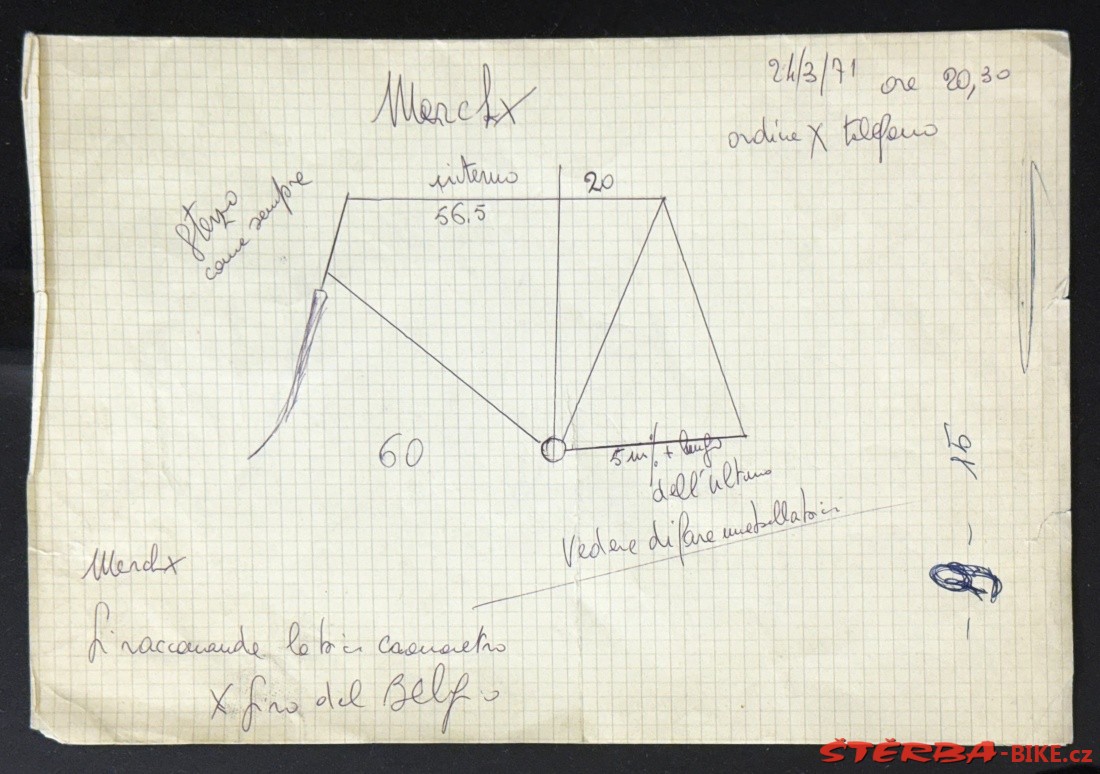 Merckx
24/3/71 ore 20,30
ordine X telefono
sterzo
come sempre
interno
56.5
20
60
5 m/m + lungo
dell'ultimo
Vedere di fare
15
Merckx
si raccomanda la bici cronometro
X giro del Belgio
ŠTĚRBA-BIKE.cz